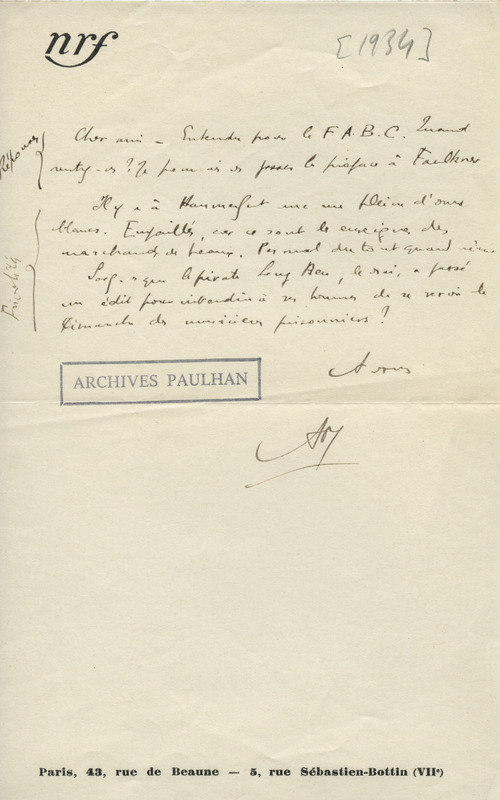 nrf
[1934]
Réponses
Cher ami – Entendu pour le F.A.B.C. Quand
? Je pourrais vs passer la préface à Faulkner
Il y a à Hammerfest une rue pleine d'ours
blancs. Empaillés, car ce sont les enseignes des
marchands de peaux. Pas mal du tout quand même
que le pirate Long Ben, le vrai, a passé
un édit pour interdire à ses hommes de se servir le
dimanche des musiciens prisonniers ?
Frivolités
ARCHIVES PAULHAN
A vous
Paris, 43, rue de Beaune — 5, rue Sébastien-Bottin (VIIe)